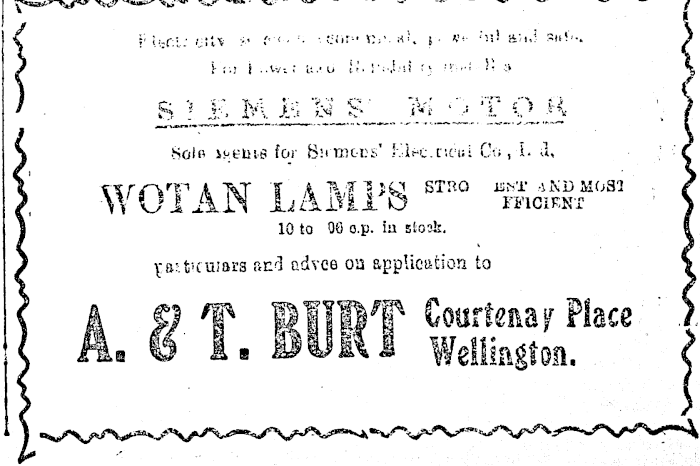 Electricity is economical, powerful and safe.
For Power and
SIEMENS' MOTOR
Sole agents for Siemens' Electrical Co., L d,
WOTAN LAMPS STRO EST AND MOST
FFICIENT
10 to 00 c.p. in stock.
particulars and advce on application to
A. & T. BURT Courtenay Place
Wellington.